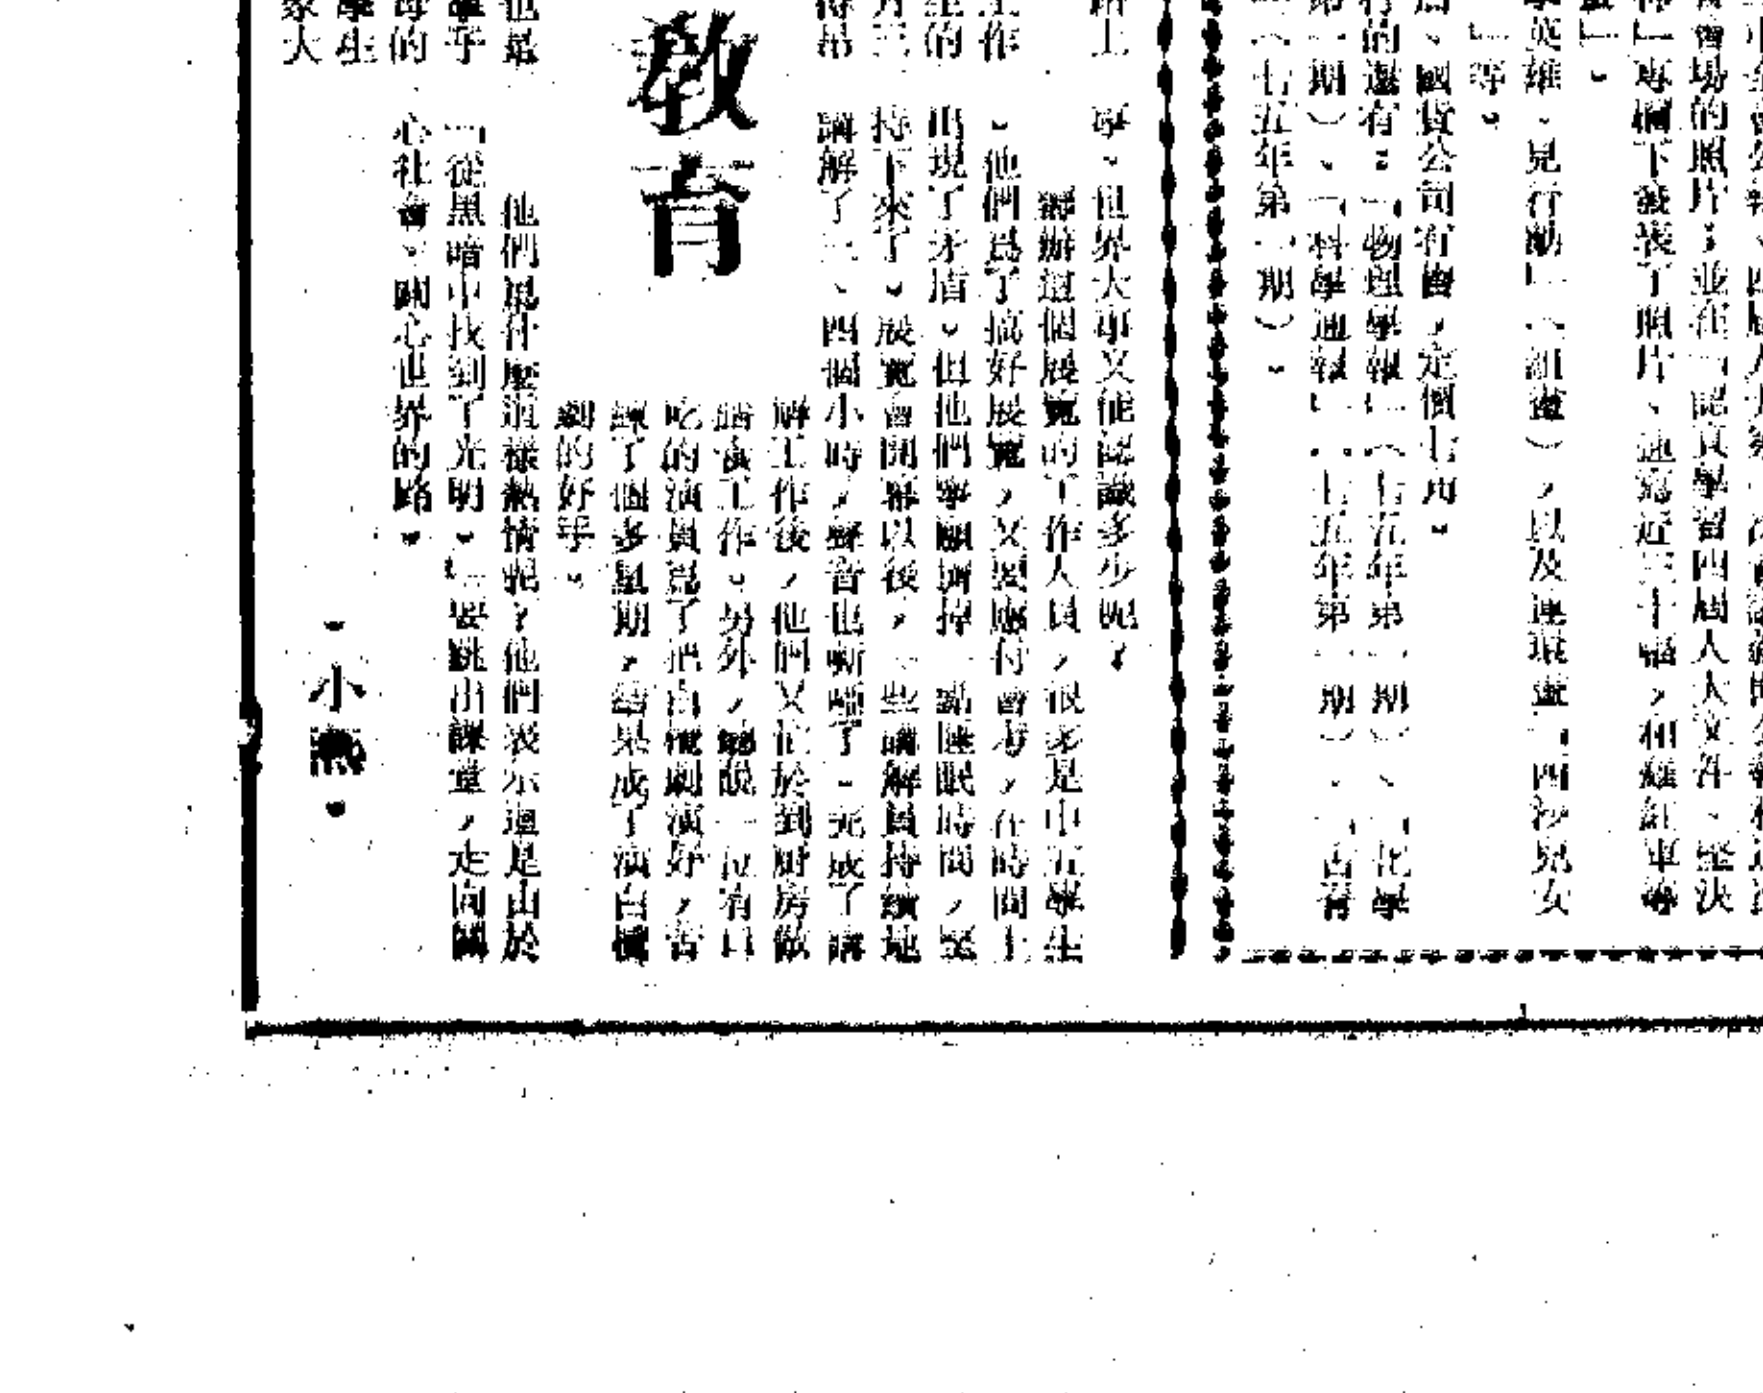 會場的照片；並在「認真學習四屆人大文件、堅決
」專欄下發表了照片、速寫近三十幅，和蘇紅軍等
英雄、見行動」（組畫），以及連環畫「西沙兒女
」等。
、國貨公司有售，定價七角。
的還有：「物理學報」（七五年第一期）、「化學
第一期）、「科學通報」（七五年第一期）、「古脊
（七五年第一期）。
上
事、世界大事又能認識多少呢？
籌辦這個展覽的工作人員，很多是中五學生
工作
。他們爲了搞好展覽，又要應付會考，在時間上
的
出現了矛盾。但他們寧願擠掉一點睡眠時間，堅
月三
持下來了。展覽會開幕以後，一些講解員持續地
講解了三、四個小時，聲音也嘶啞了。完成了講
解工作後，他們又忙於到廚房做
工作。另外，聽說一位有口
吃的演員爲了把白欖劇演好，苦
練了個多星期，結果成了演白欖
劇的好手。
教育
也是
他們爲什麼這樣熱情呢？他們表示這是由於
乎
「從黑暗中找到了光明。」要跳出課堂，走向關
的
心社會、關心世界的路。
學生
家大
・小燕・